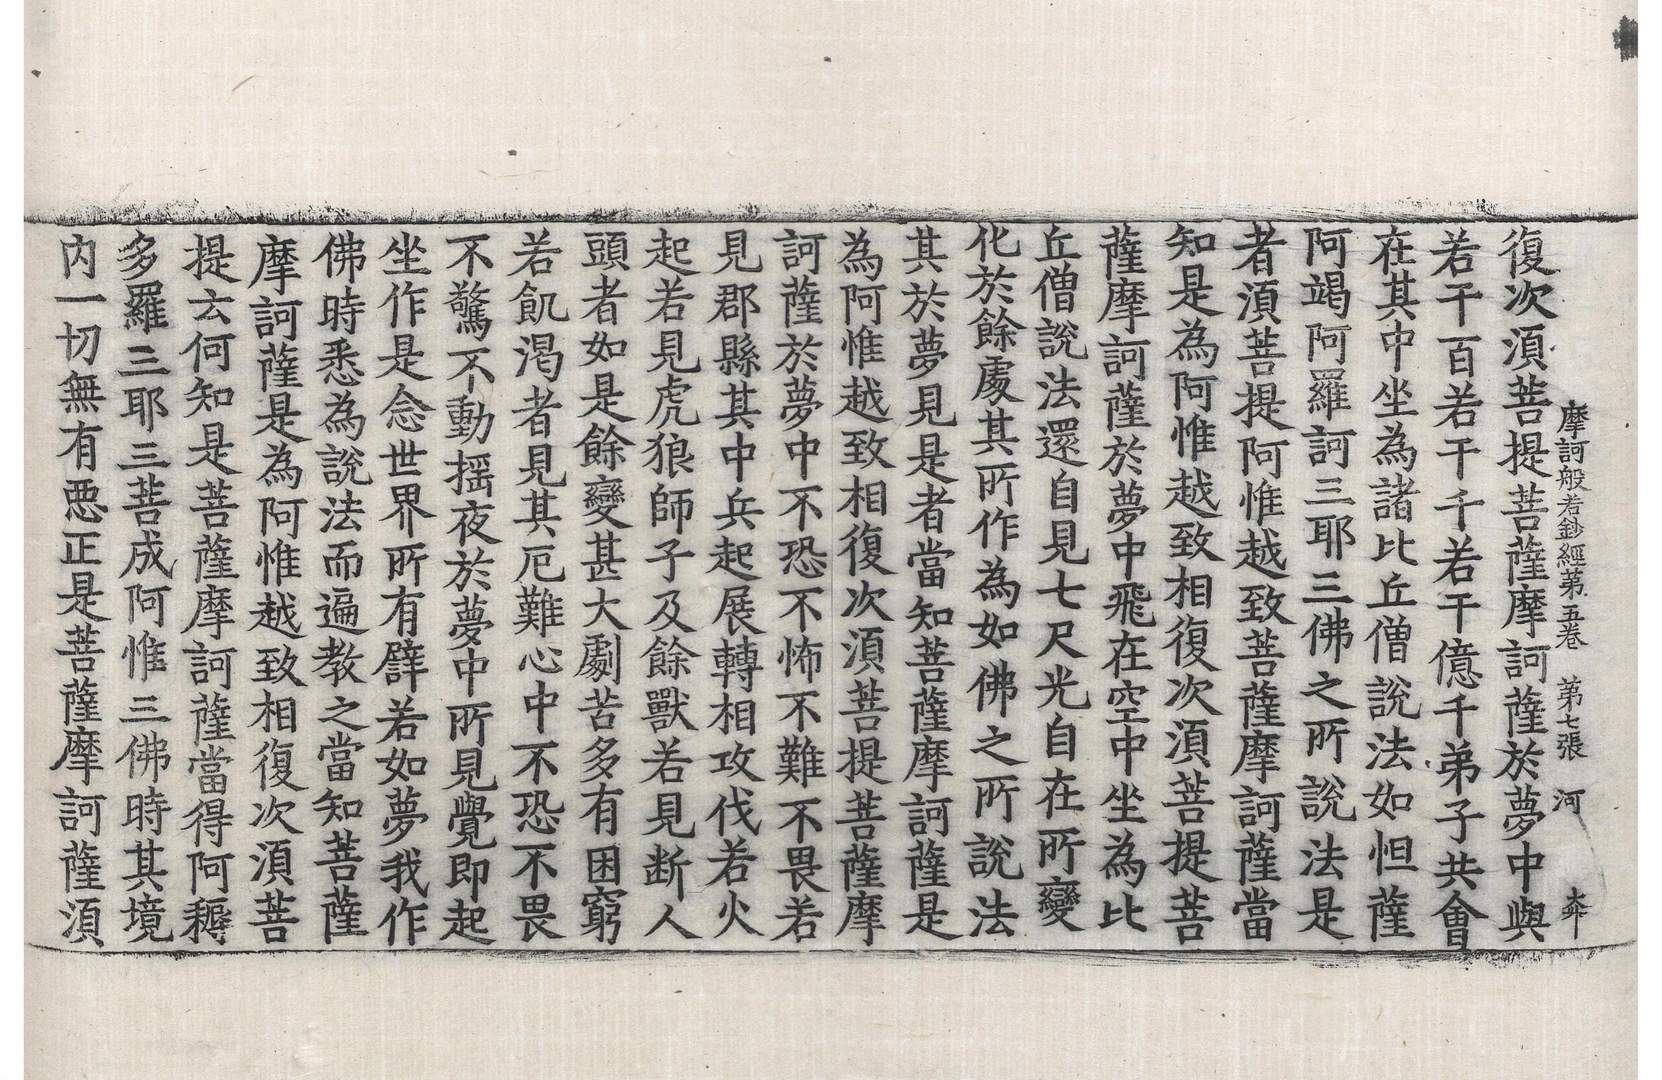 摩訶般若鈔經第五卷 第七張 河
復次湏菩提菩薩摩訶薩於夢中與
若干百若干千若干億千弟子共會
在其中坐為諸比丘僧說法如怛薩
阿竭阿羅訶三耶三佛之所說法是
者湏菩提阿惟越致菩薩摩訶薩當
知是為阿惟越致相復次湏菩提菩
薩摩訶薩於夢中飛在空中坐為比
丘僧說法還自見七尺光自在所變
化於餘處其所作為如佛之所說法
其於夢見是者當知菩薩摩訶薩是
為阿惟越致相復次湏菩提菩薩摩
訶薩於夢中不恐不怖不難不畏若
見郡縣其中兵起展轉相攻伐若火
起若見虎狼師子及餘獸若見断人
頭者如是餘變甚大劇苦多有困窮
若飢渴者見其厄難心中不恐不畏
不驚不動揺夜於夢中所見覺即起
坐作是念世界所有譬若如夢我作
佛時悉為說法而遍教之當知菩薩
摩訶薩是為阿惟越致相復次湏菩
提云何知是菩薩摩訶薩當得阿耨
多羅三耶三菩成阿惟三佛時其境
内一切無有悪正是菩薩摩訶薩湏